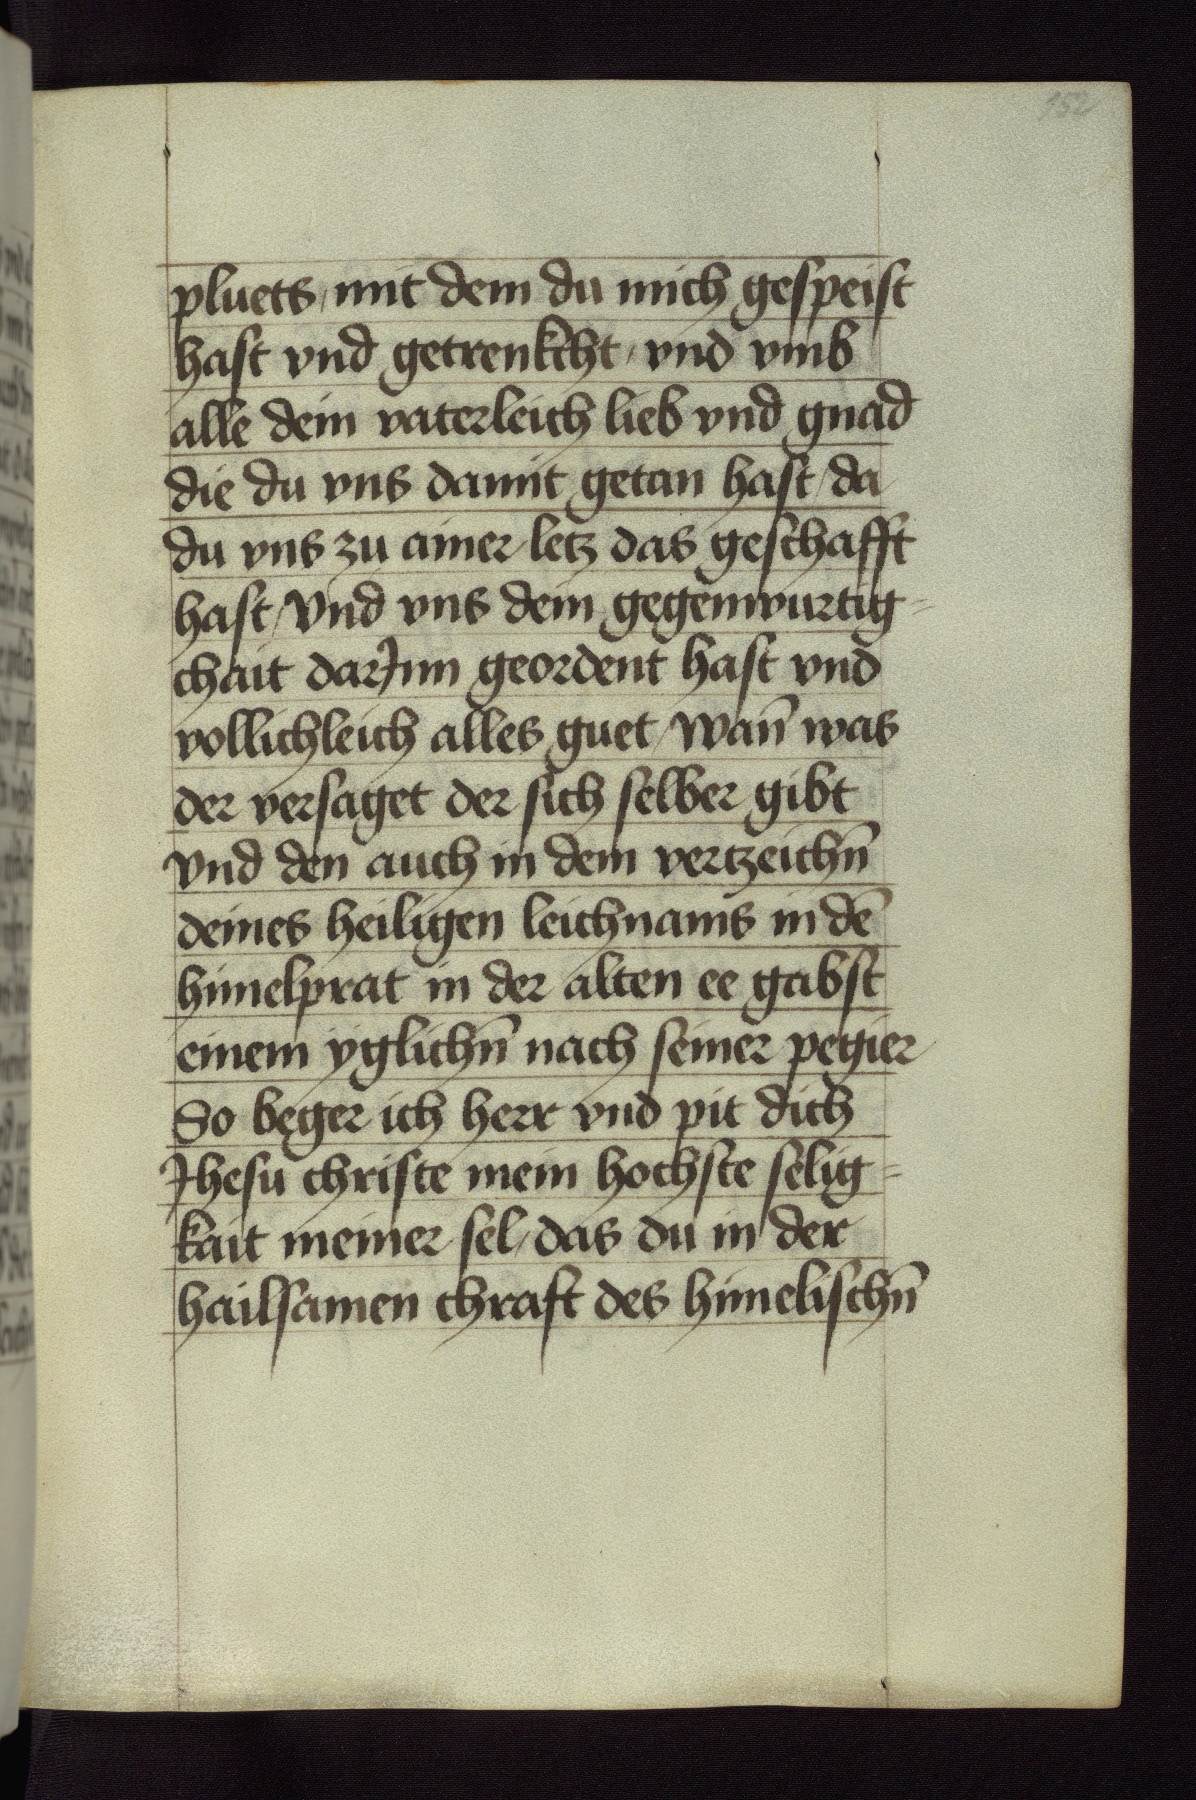 152
pluets / mit dem du mich gespeist
hast vnd getrenkcht / vnd vmb
alle dein vaterleich lieb vnd gnad
die du vns damit getan hast / da
du vns zu ainer letz das geschafft
hast / Vnd vns dein gegenwurtig=
chait darJnn geordent hast vnd
vollichleich alles guet / Wan̄ was
der versaget der sich selber gibt
Vnd den auch in dem vertzeichn̄
deines heiligen leichnams in dē
himelprat in der alten ee gabst
einem ÿglichn̄ nach seiner pegier
So beger ich herr vnd pit dich
Jhesu christe mein hochste selig=
kait meiner sel / das du in der
hailsamen chraft des himelischn̄